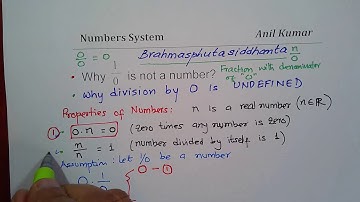 Numbers System Anil Kumar
0/0 = 0 Brahmasphuta siddhanta n/0
• Why 1/0 is not a number? Fraction with denominator
or "0"
• Why division by 0 is UNDEFINED
Properties of Numbers: n is a real number (n∈R)
① 0·n = 0 (zero times any number is zero)
n/n = 1 (number divided by itself is 1)
Assumption: Let 1/0 be a number
0 · 1/0 { 0 — ①